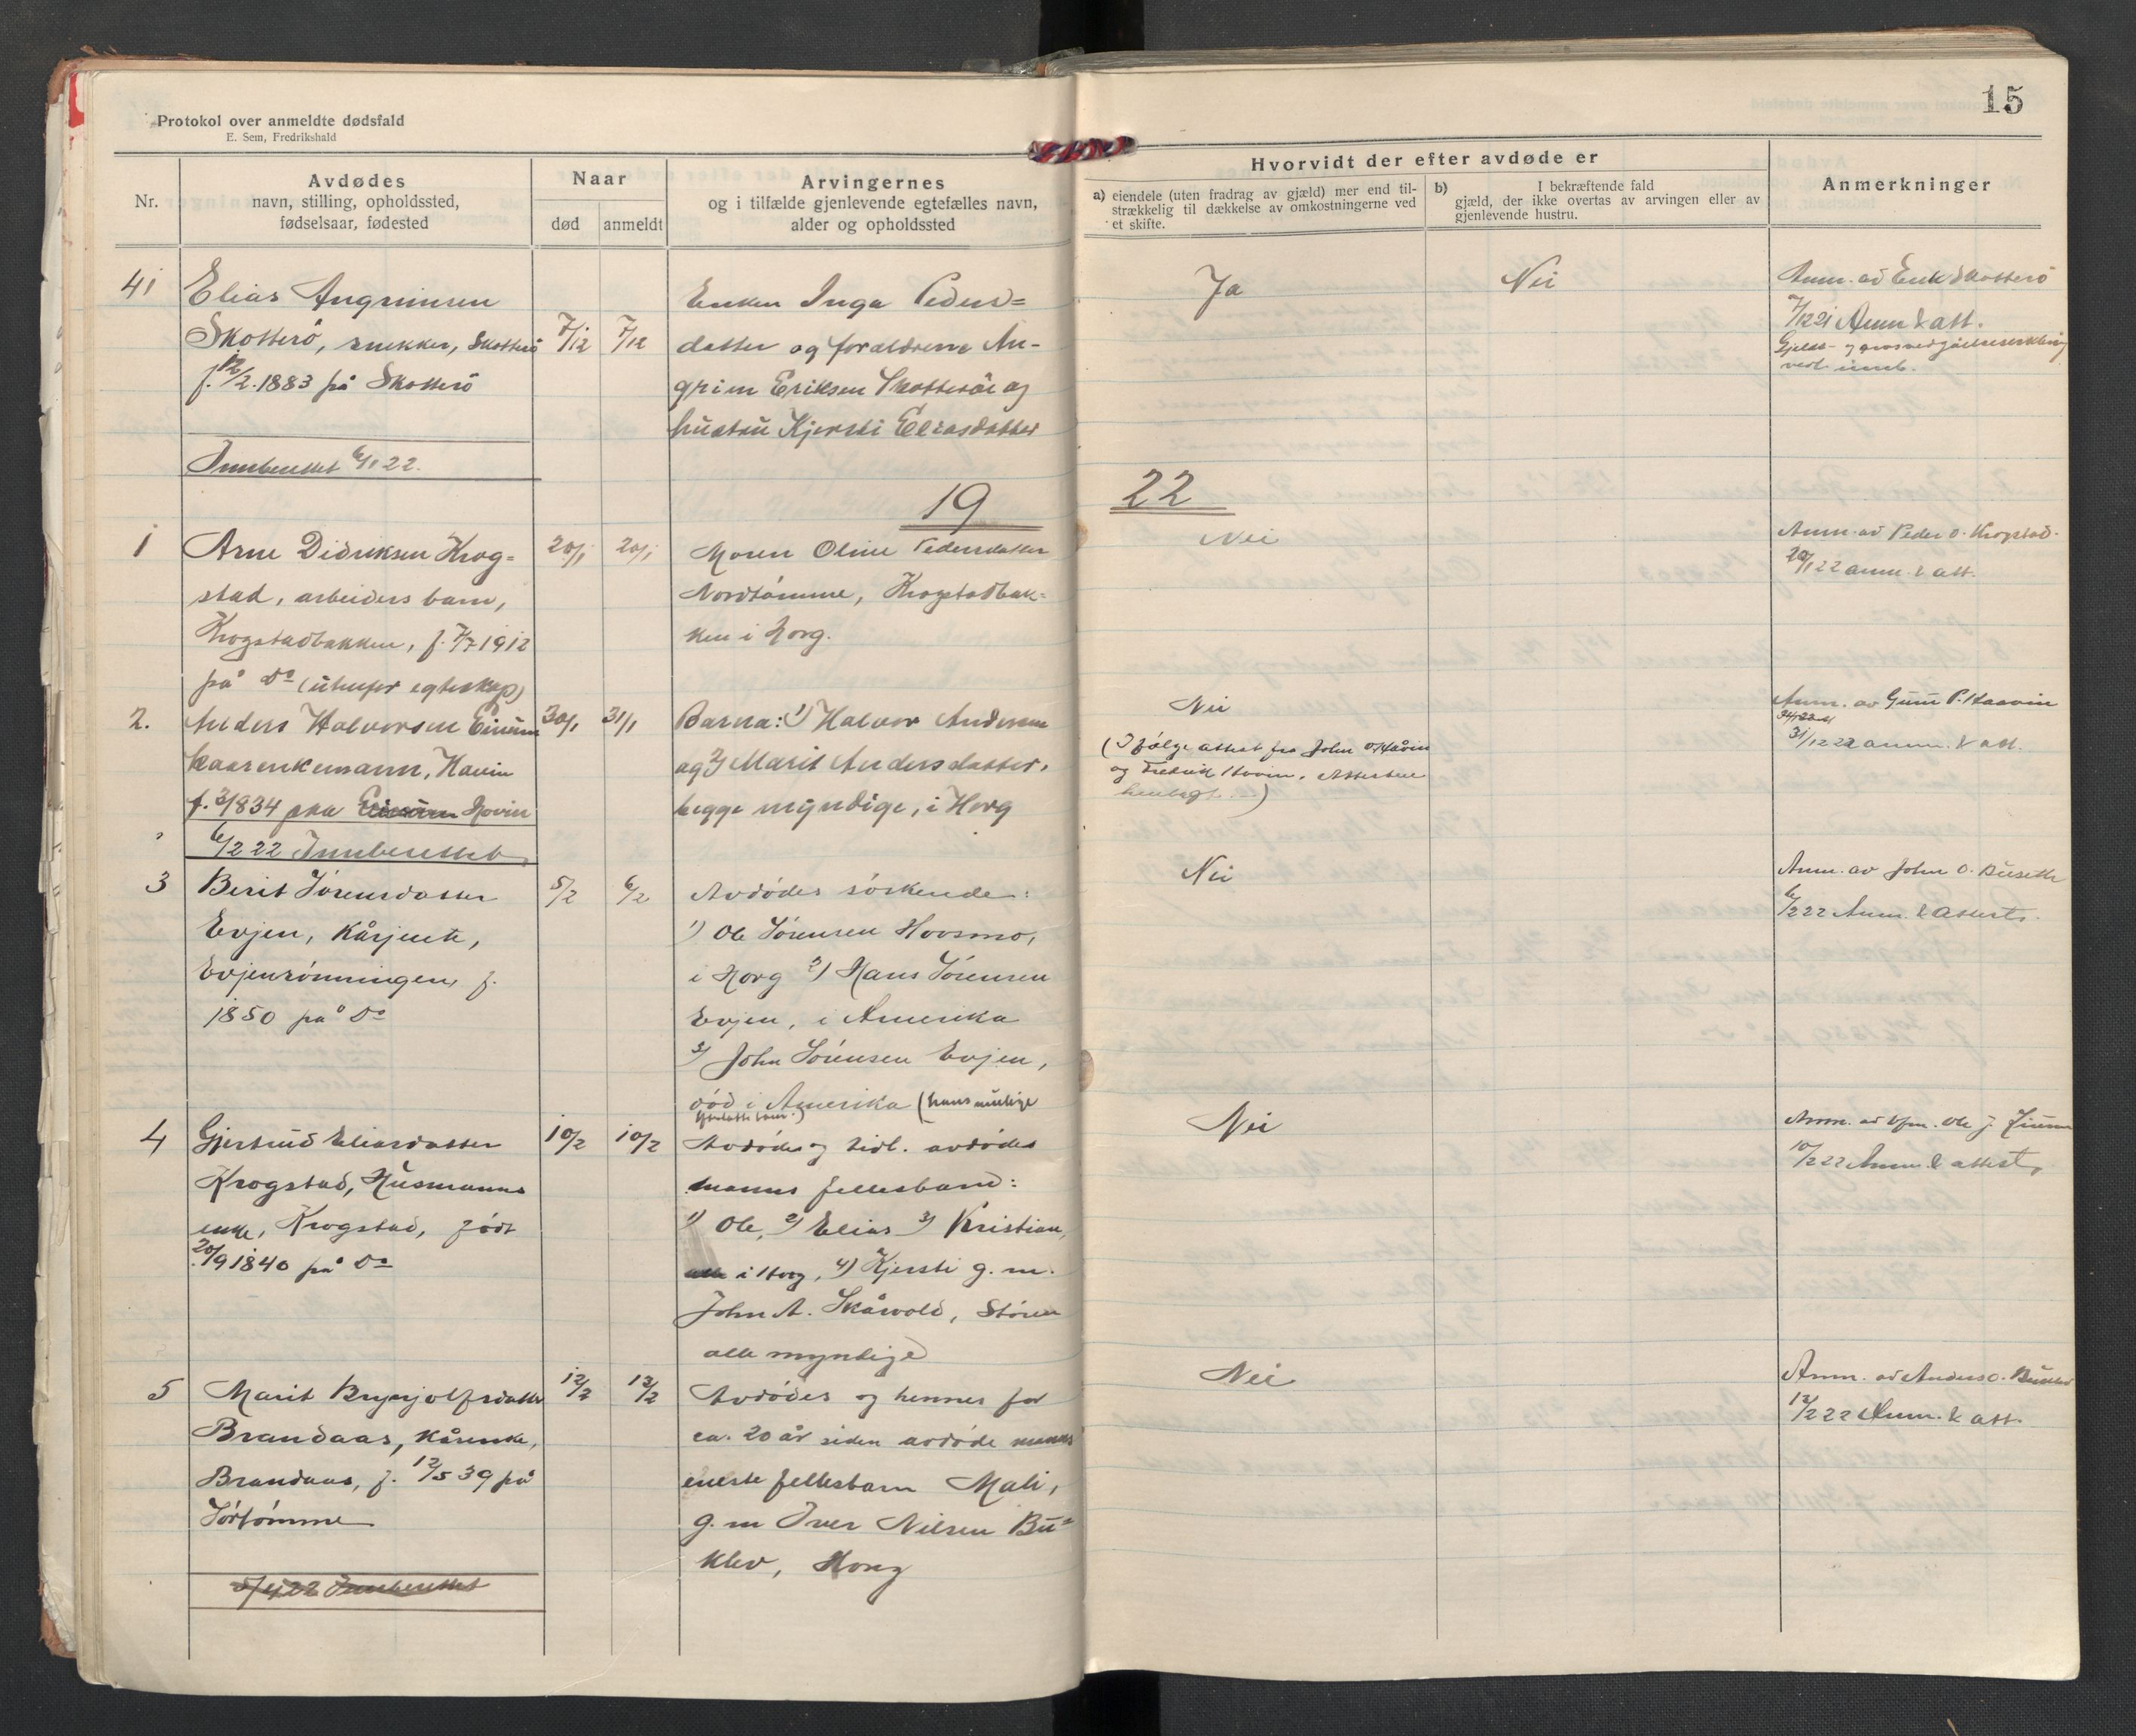 15
Protokol over anmeldte dødsfald
E. Sem, Fredrikshald
Nr.
Avdødes
navn, stilling, opholdssted,
fødselsaar, fødested
Naar
død
anmeldt
Arvingernes
og i tilfælde gjenlevende egtefælles navn,
alder og opholdssted
Hvorvidt der efter avdøde er
a) eiendele (uten fradrag av gjæld) mer end til-
strækkelig til dækkelse av omkostningerne ved
et skifte.
b) I bekræftende fald
gjæld, der ikke overtas av arvingen eller av
gjenlevende hustru.
Anmerkninger
41
Elias Angrimsen
Skotterö, snekker, Skotterö
f. 12/2. 1883 på Skotterö
7/12
7/12
Enken Inga Peders=
datter og forældrene An-
grim Eriksen Skotterö og
hustru Kjersti Eliasdatter
Ja
Nei
Anm. av Erik Skotterö
7/12 21 Anm & att.
vedl. innb.
Innberettet 6/1 22.
19
22
1
Arne Didriksen Krog=
stad, arbeiders barn,
Krogstadbakken, f. 7/7 1912
på do (utenfor egteskap)
20/1
20/1
Moren Oline Pedersdatter
Nordtömme, Krogstadbak-
ken i Horg.
Nei
Anm. av Peder O. Krogstad.
20/1 22 anm. & att.
2.
Anders Halvorsen Einum
kaarenkemann, Hovin
f. 3/1834 paa Einum Hovin
30/1
31/1
Barna: 1) Halvor Andersen
og 2) Marit Andersdatter,
begge myndige, i Horg
Nei
(Ifölge attest fra John O. Håvin
og Fredrik Hovin. Attesten
henlagt.)
Anm. av Guru P. Haavin
31/12 22 anm. & att.
6/2 22 Innberettet
3
Berit Sörensdatter
Evjen, Kårjente,
Evjenrönningen, f.
1850 på do
5/2
6/2
Avdödes söskende:
1) Ole Sörensen Hovsmo,
i Horg 2) Hans Sörensen
Evjen, i Amerika
3) John Sörensen Evjen,
död i Amerika (hans mulige
Nei
Anm. av John O. Buseth
6/2 22 Anm. & attest.
4
Gjertrud Eliasdatter
Krogstad, Husmanns
enke, Krogstad, född
20/9 1840 på do
10/2
10/2
Avdödes og tidl. avdödes
manns fellesbarn:
1) Ole, 2) Elias 3) Kristian,
alle i Horg, 4) Kjersti g. m.
John A. Skårvold, Stören
alle myndige
Nei
10/2 22 Anm. & attest.
5
Marit Brynjolfsdatter
Brandaas, Kårenke,
Brandaas, f. 12/5 39 på
Sörtömme
12/2
13/2
Avdödes og hennes for
ca. 20 år siden avdöde manns
eneste fellesbarn Mali,
g. m Iver Nilsen Bu=
klev, Horg
Nei
Anm. av Anders O. Buklev
13/2 22 Anm. & att.
5/4 22 Innberettet